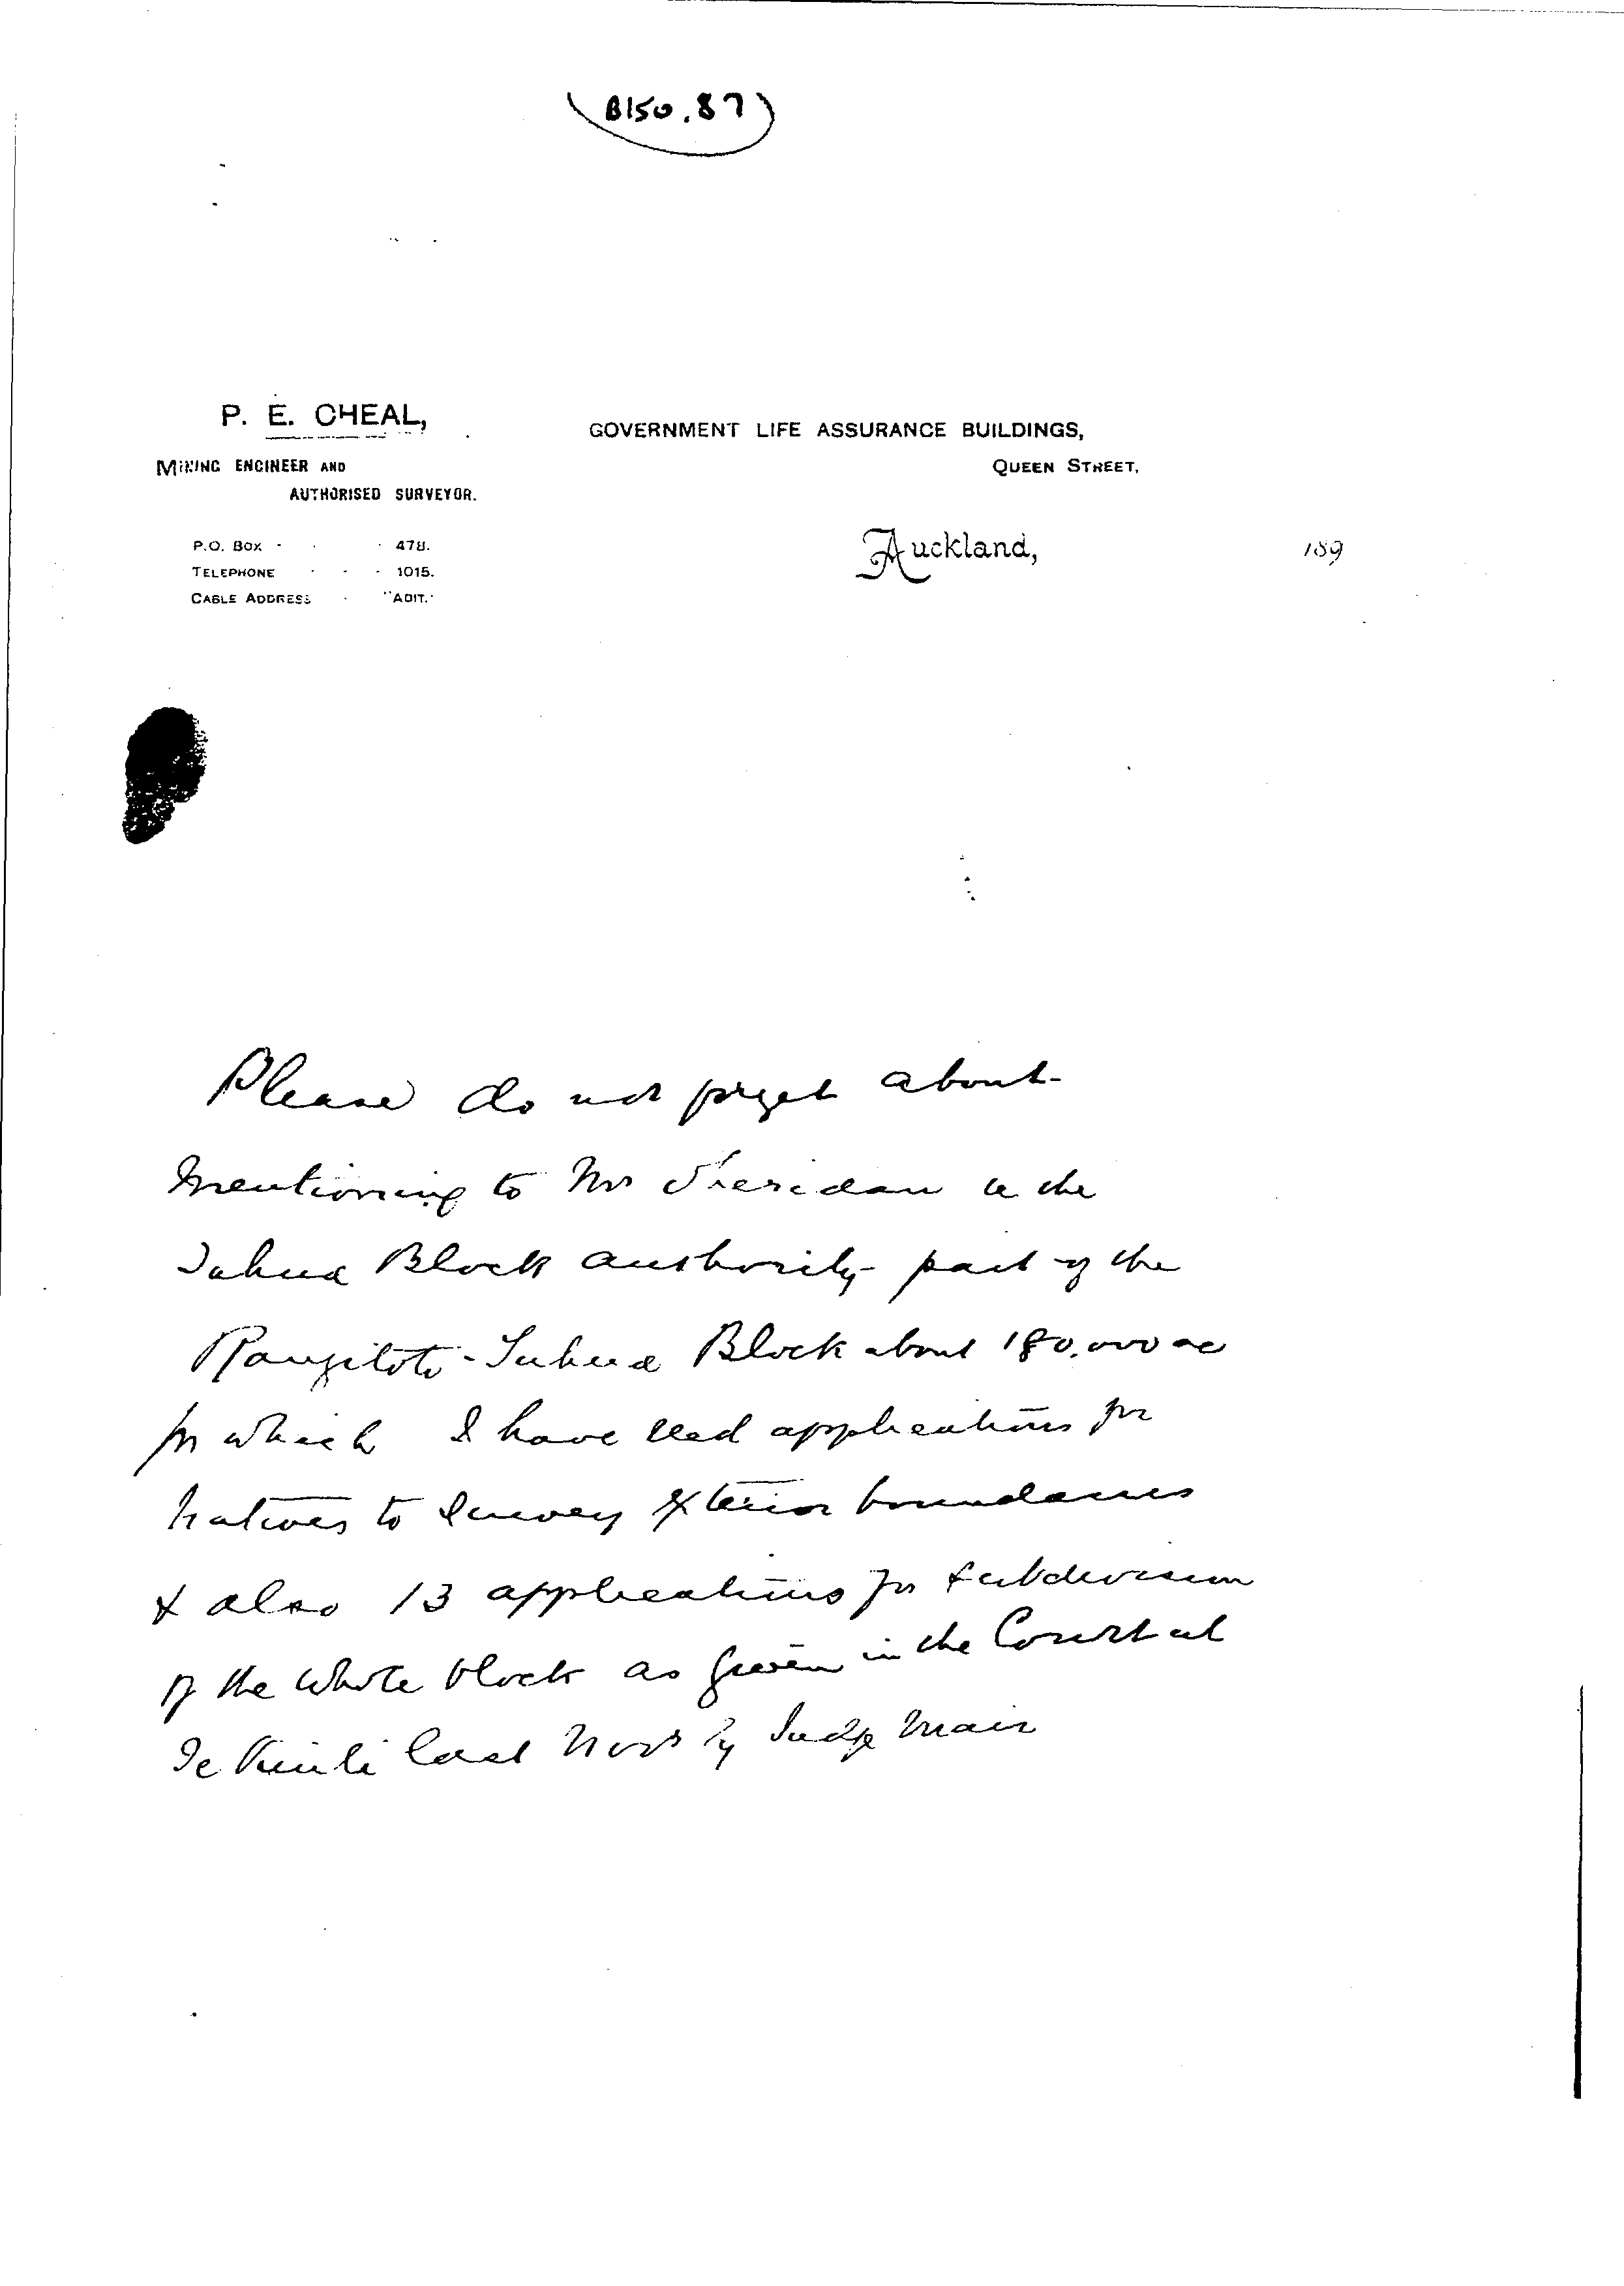 B150.87
P. E. CHEAL,
MINING ENGINEER AND
AUTHORISED SURVEYOR.
GOVERNMENT LIFE ASSURANCE BUILDINGS,
QUEEN STREET,
P.O. BOX - 478.
TELEPHONE - - - 1015.
CABLE ADDRESS - "ADIT."
Auckland, 189
Please do not forget about
mentioning to Mr Sheridan re the
Tuhua Block authority part of the
Rangitoto-Tuhua Block about 180.000 ac
for which I have applications for
Natives to survey exterior boundaries
& also 13 applications for subdivision
of the whole block as given in the Court at
Te Kuiti last Novr by Judge Mair